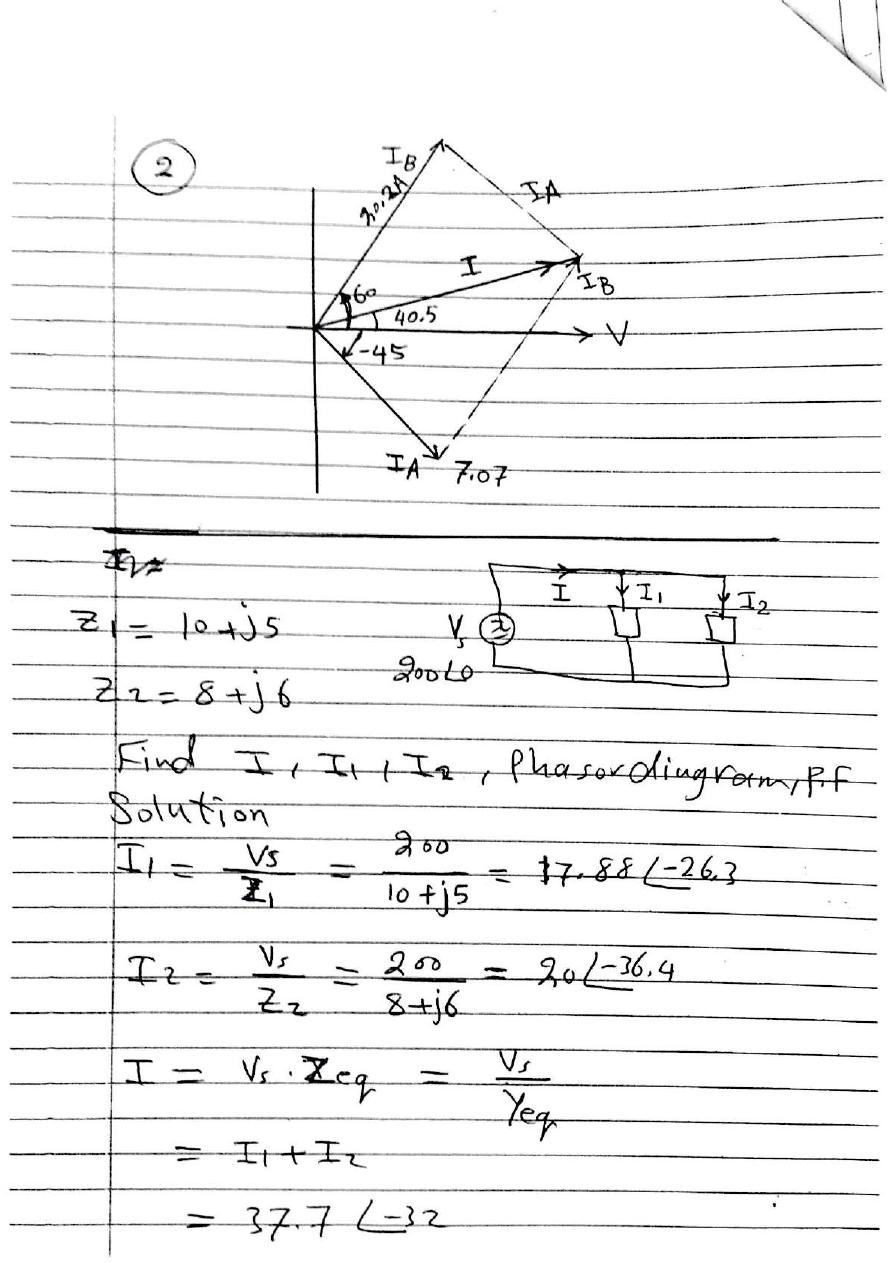 2
I_B
20.2A
I_A
I
I_B
60
40.5
V
-45
I_A 7.07
Z1 = 10 + j5
Z2 = 8 + j6
I I1 I2
Vs
200∠0
Find I, I1, I2, Phasor diagram, P.F
Solution
I1 = Vs / Z1 = 200 / 10 + j5 = 17.88 ∠-26.3
I2 = Vs / Z2 = 200 / 8 + j6 = 20 ∠-36.4
I = Vs . Zeq = Vs / Yeq
= I1 + I2
= 37.7 ∠-32